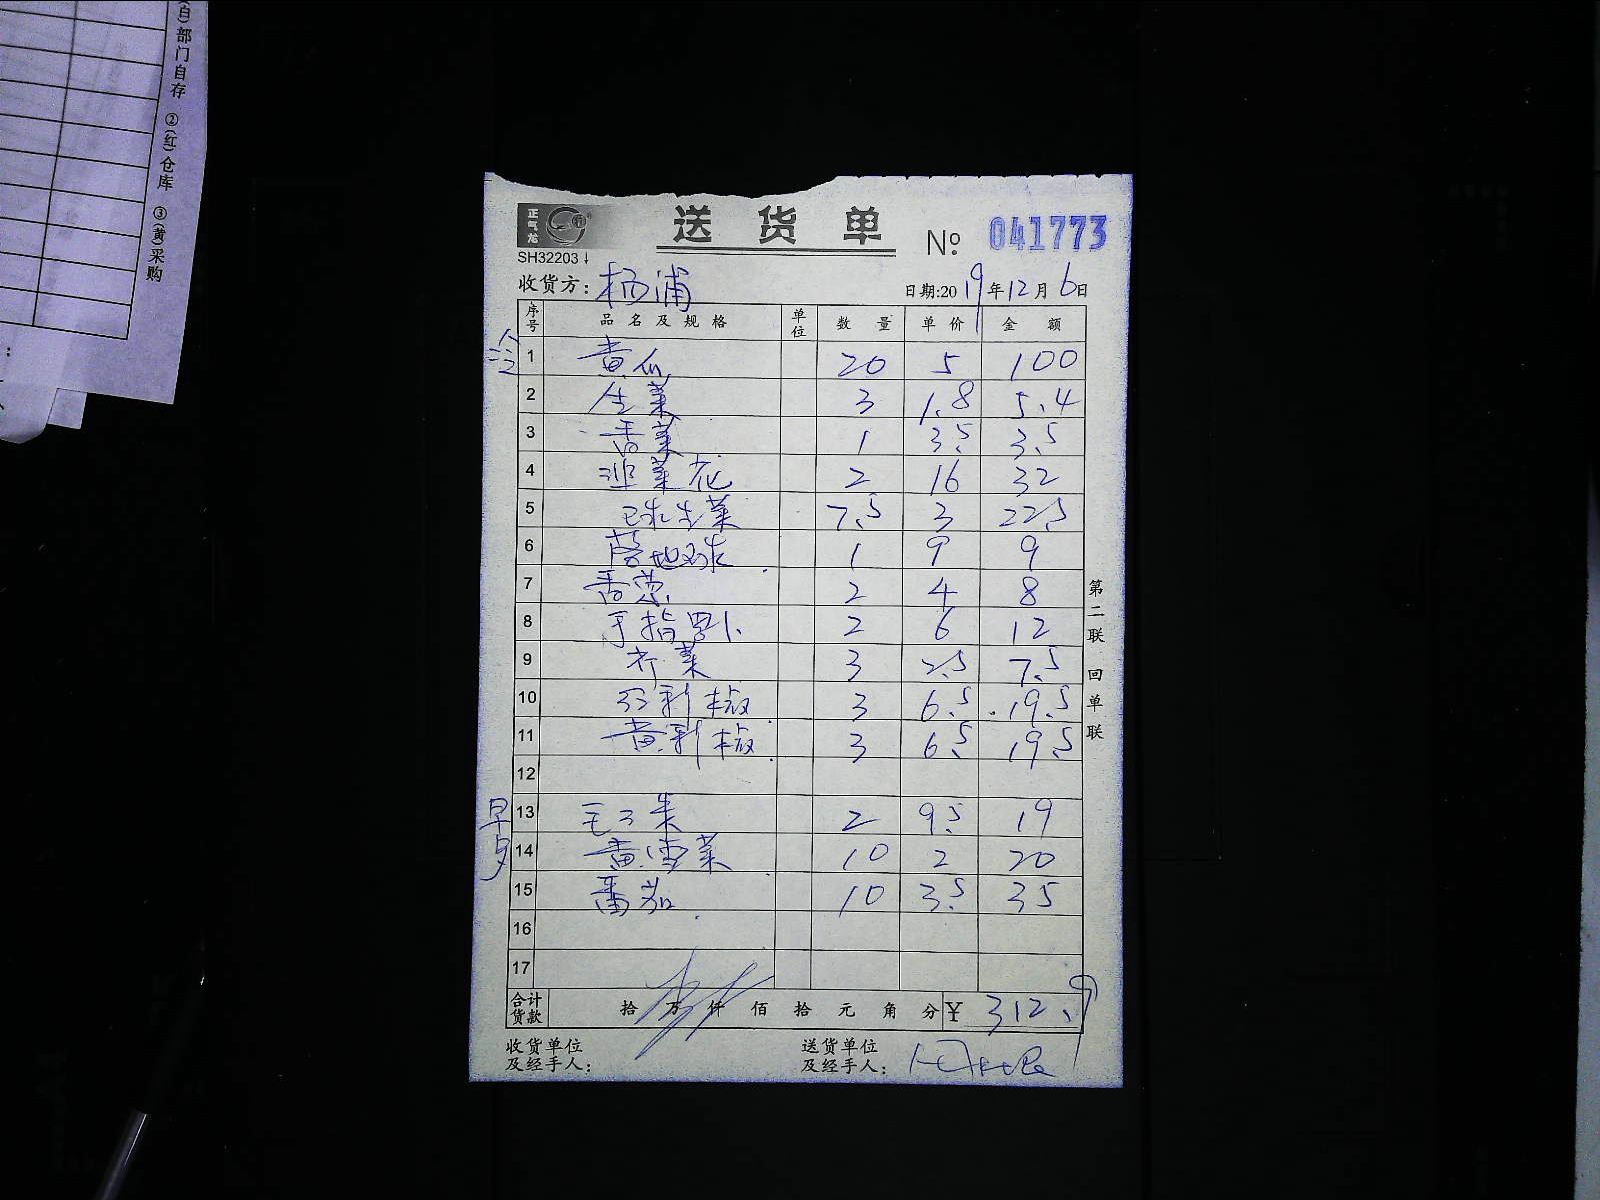 (白)部门自存 ②(红)仓库 ③(黄)采购
正气龙
送货单
No 041773
SH32203
收货方: 杨浦
日期:2019年12月6日
序号 品名及规格 单位 数量 单价 金额
1 黄瓜 20 5 100
2 生菜 3 1.8 5.4
3 香菜 1 3.5 3.5
4 韭菜花 2 16 32
5 球生菜 7.5 3 22.5
6 1 9 9
7 香葱 2 4 8
8 手指萝卜 2 6 12
9 荠菜 3 2.5 7.5
10 红彩椒 3 6.5 19.5
11 黄彩椒 3 6.5 19.5
12
早
13 毛豆 2 9.5 19
14 菜 10 2 20
15 番茄 10 3.5 35
16
17
合计货款 拾万仟佰拾元角分 ¥ 312.9
收货单位及经手人:
送货单位及经手人:
第二联 回单联